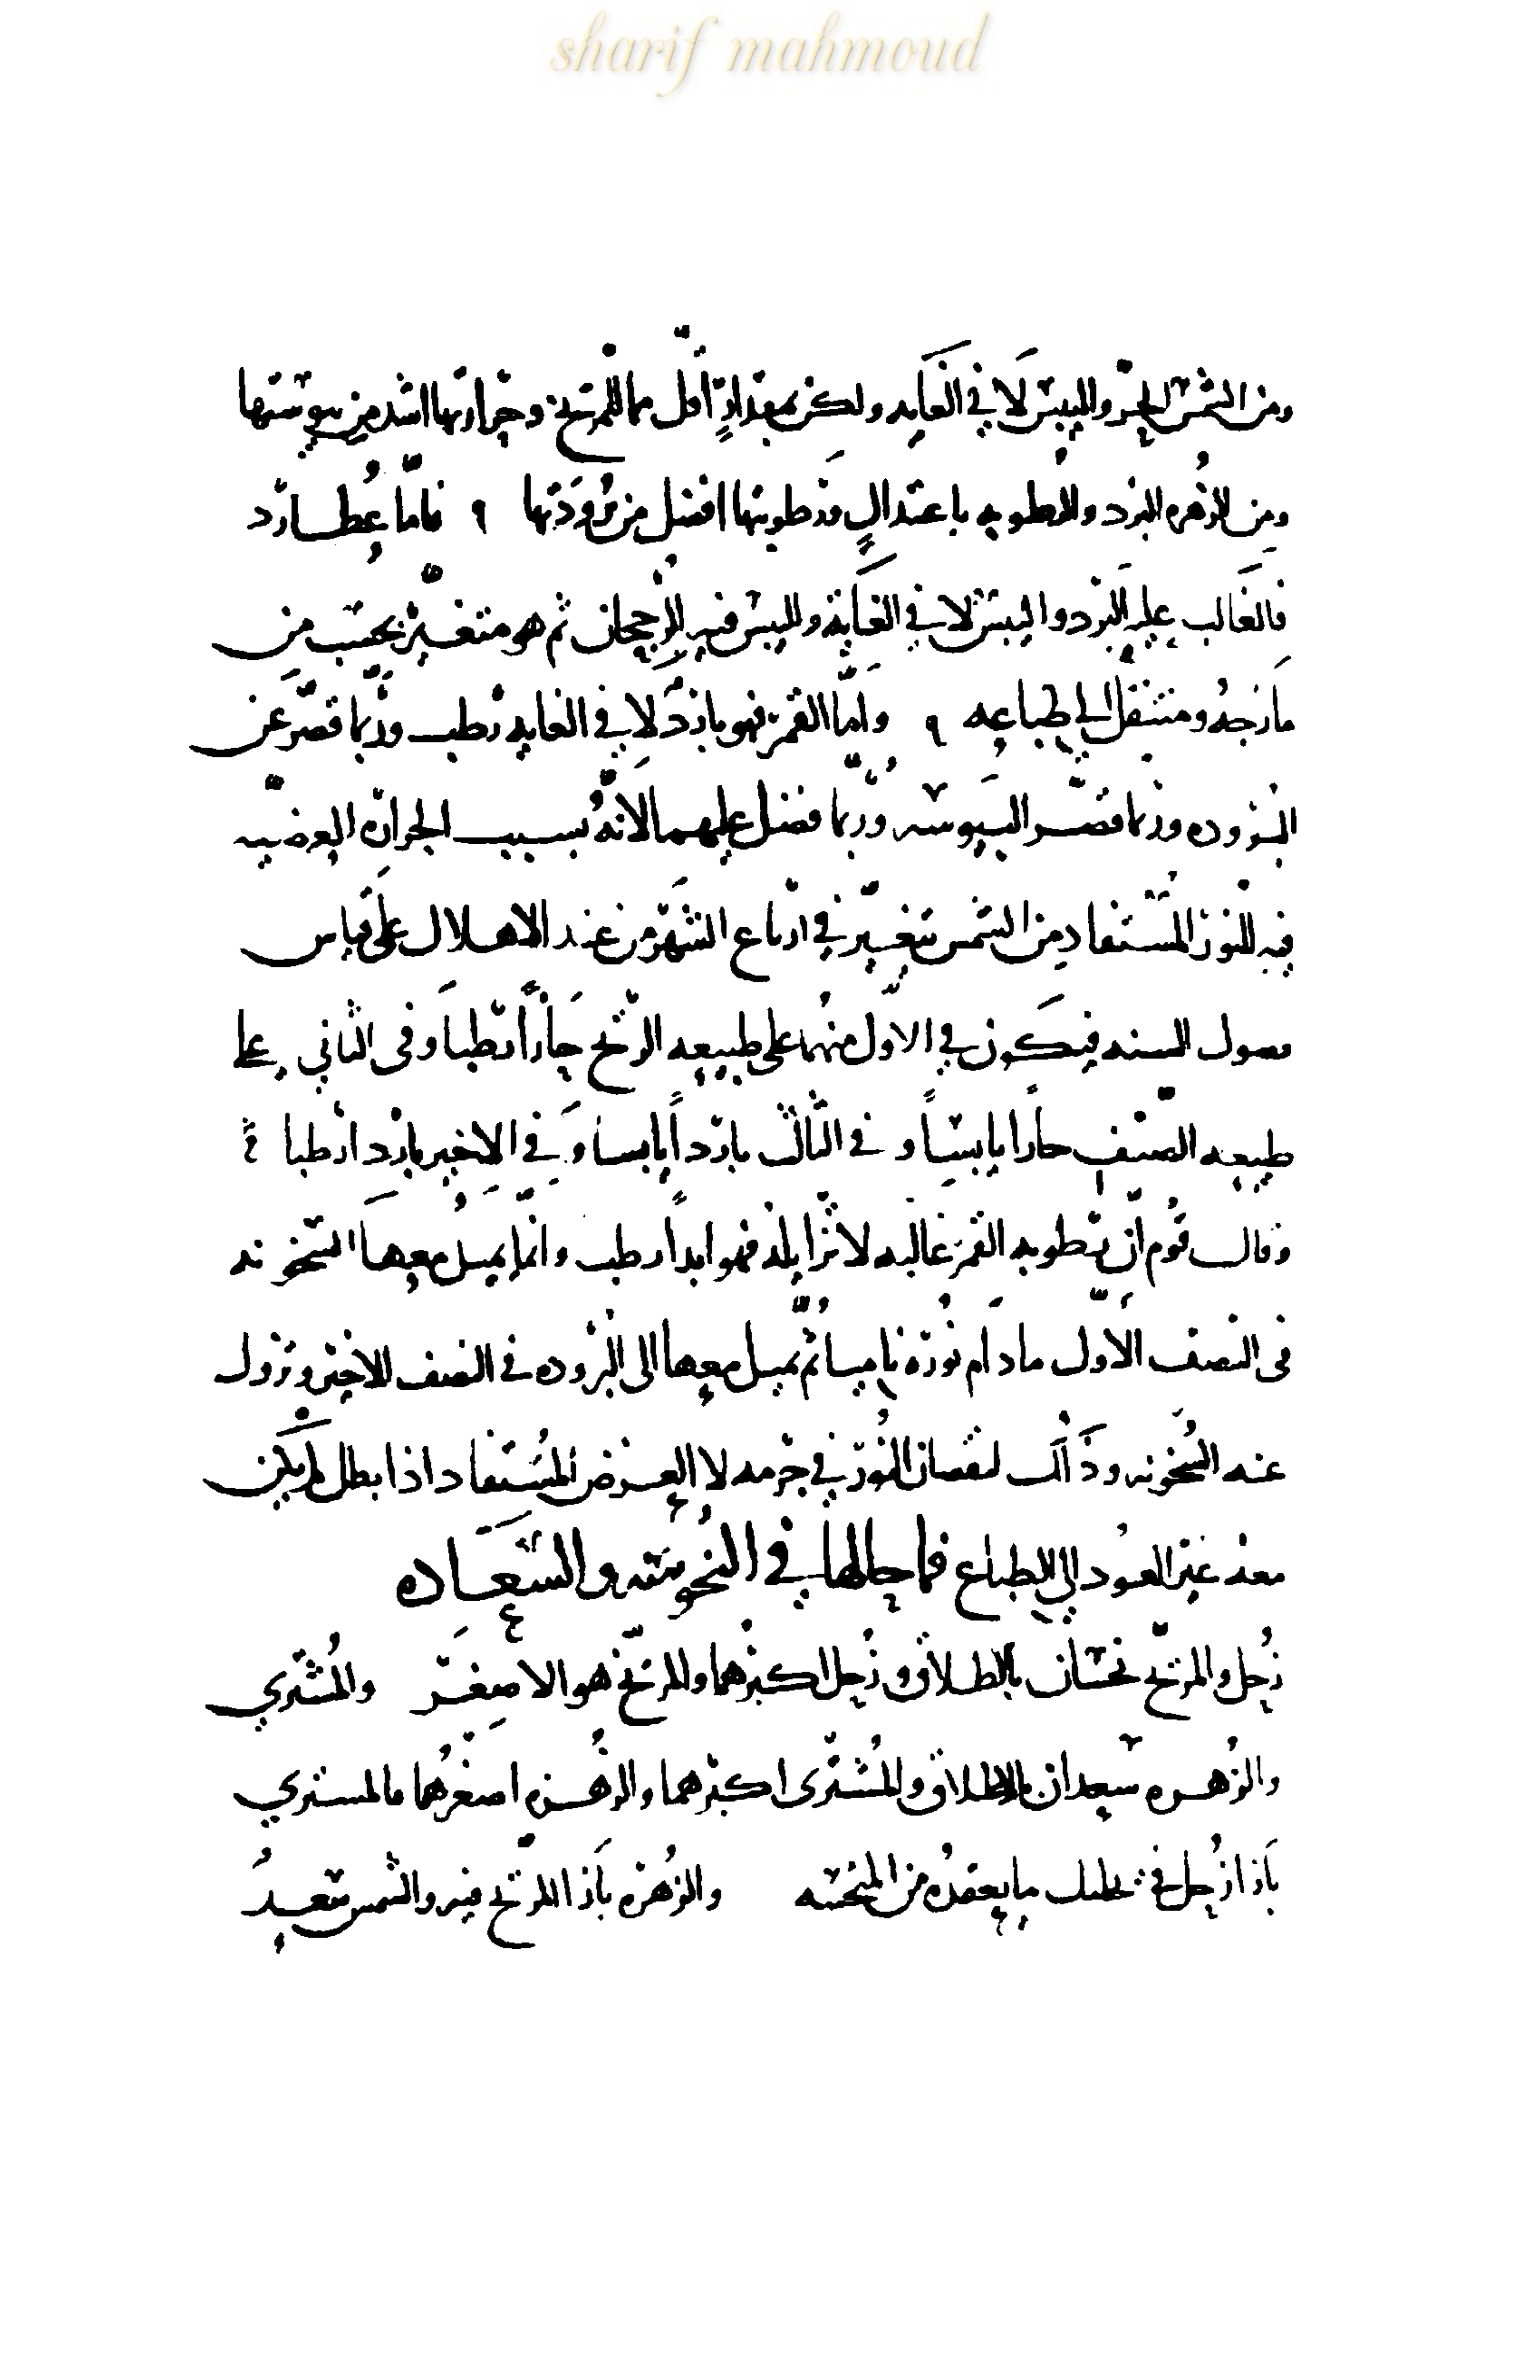 sharif mahmoud
ومن الشمس الحرّ واليبس لَا في الغَايه ولكن بمقدارٍ أقل مما للمريخ وحرارتها اشد من يبوستها
ومن الزُهره البرد والرطوبه باعتدالٍ ورطوبتها افضل من برُودَتها ٩ فامّا عُطارد
فالغَالب عليه البَرد واليبس لا في الغَاية واليبس فيه الرُجحان ثم هو متغيّر بحسب من
مازجهُ ومنتقل الى طباعه ٩ وامّا القمر فهو باردٌ لا في الغايه رطب وربّما قصّر عن
البروده وربما قصّر اليبوسه ورُبّما فضل عليهما لَانّهُ بسبب الحراره العرضيه
فيه للنور المُستفاد من الشمس يتغيّر في ارباع الشَهر من عند الاهلال علَى قياس
فصول السنه فيكَون في الاوّل منهُما على طبيعه الربيع حَارًّا رطباً وفى الثاني على
طبيعه الصّيف حارا يابسًا وفي الثالث باردًا يابسا وَفي الاخير باردا رطبا
وقال قُوم انّ رطوبه القمر غالبه لا تزايله فهو ابدًا رطب وانّما يميل معهَا السخونه
فى النصف الأوّل مادَام نُوره ناميا ثُمّ يميل معها الى البُروده في النصف الاخير وتزول
عنه السُخَونه وذَٰلك لنقصان النُور في جرمه لا العرض المُستفاد اذا بطل لم يكن
معه غير العُود الى الطباع فما حالها في النُحُوسَه والسَّعَاده
زُحل والمريّخ نحسان بالاطلاق وزُحل اكبرهما والمريّخ هو الاصغَر والمُشتَري
والزُهره سعدان بالاطلاق والمُشترى اكبرهما والزُهره اصغرُهما فالمشتري
بَازا زُحل في تحليل ما يعقدُه من المنحسه والزُهره بَازا المريخ فيه والشمس سَعدُ